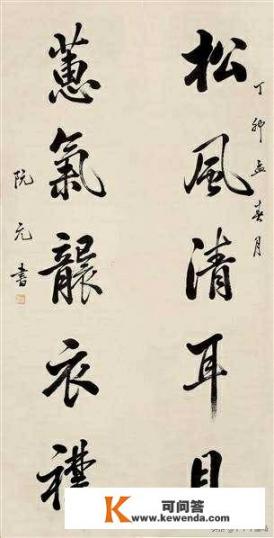 丁卯孟春月
松風清耳目
蕙氣襲衣襟
阮元書
K 可问答
www.kewenda.com